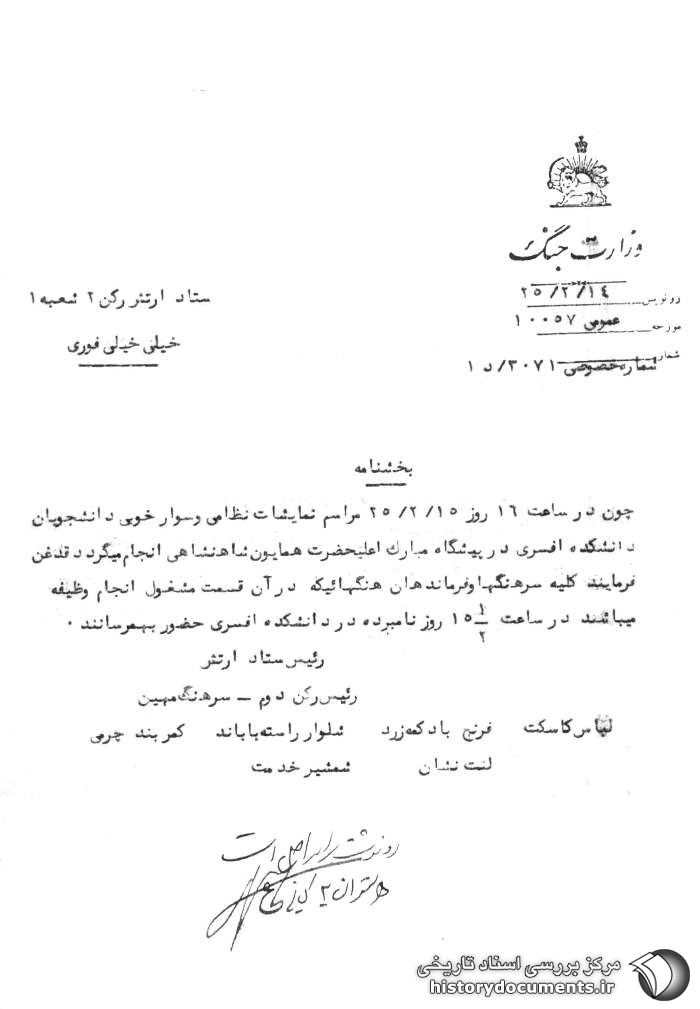 وزارت جنگ
رونویس ۲۵/۲/۱۴
مورخه عمومی ۱۰۰۵۷
شماره
شماره خصوصی ۳۰۷۱/د ۱
ستاد ارتش رکن ۲ شعبه ۱
خیلی خیلی فوری
بخشنامه
چون در ساعت ۱۶ روز ۲۵/۲/۱۵ مراسم نمایشات نظامی و سوار خوبی دانشجویان
دانشکده افسری در پیشگاه مبارک اعلیحضرت همایون شاهنشاهی انجام میگردد قدغن
فرمایند کلیه سرهنگها و فرماندهان هنگهائیکه در آن قسمت مشغول انجام وظیفه
میباشند در ساعت ۱۵ ۱/۲ روز نامبرده در دانشکده افسری حضور بهمرسانند ۰
رئیس ستاد ارتش
رئیس رکن دوم – سرهنگ مهین
لباس کاسکت فرنج با دکمه زرد شلوار راسته با باند کمربند چرمی
لنت نشان شمشیر خدمت
رونوشت برابر اصل است
مرکز بررسی اسناد تاریخی
historydocuments.ir